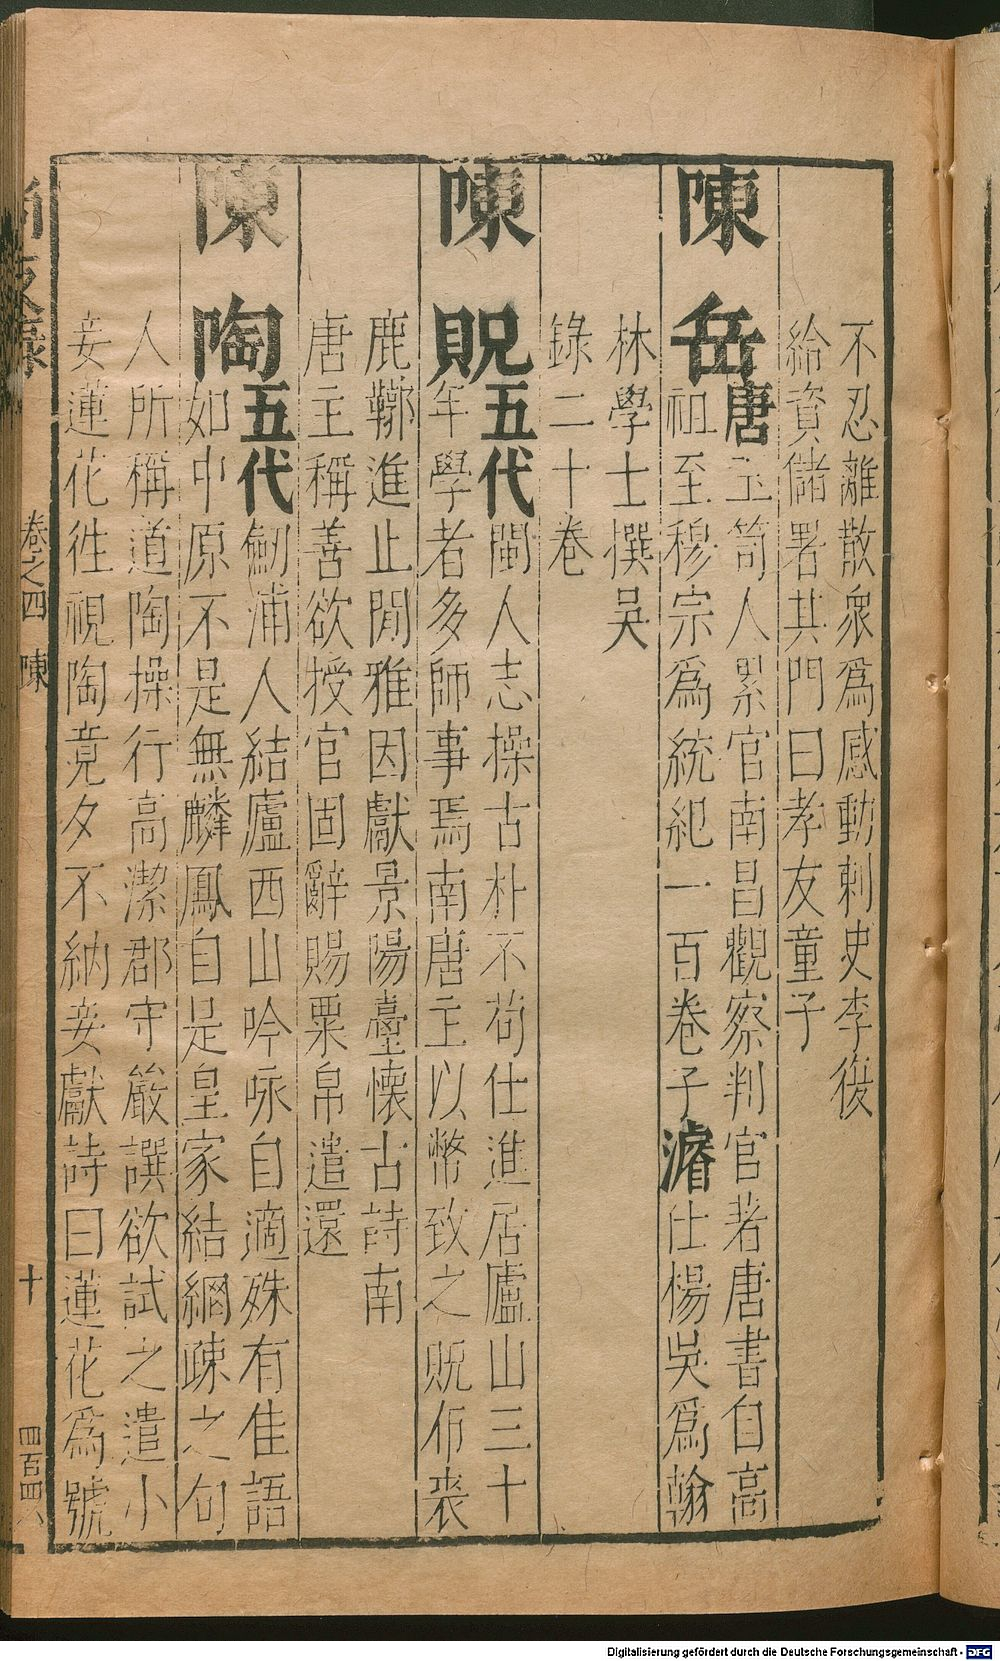 不忍離散衆爲感動刺史李復
給資儲署其門曰孝友童子
陳岳唐玉笥人累官南昌觀察判官著唐書自高
祖至穆宗爲統紀一百卷子濬仕楊吳爲翰
林學士撰吳
錄二十卷
陳貺五代閩人志操古朴不苟仕進居廬山三十
年學者多師事焉南唐主以幣致之貺布裘
鹿鞹進止閒雅因獻景陽臺懷古詩南
唐主稱善欲授官固辭賜粟帛遣還
陳陶五代劒浦人結廬西山吟咏自適殊有佳語
如中原不是無麟鳳自是皇家結網疎之句
人所稱道陶操行高潔郡守嚴譔欲試之遣小
妾蓮花徃視陶竟夕不納妾獻詩曰蓮花爲號
尚友錄 卷之四 陳 十 四百四八
Digitalisierung gefördert durch die Deutsche Forschungsgemeinschaft - DFG